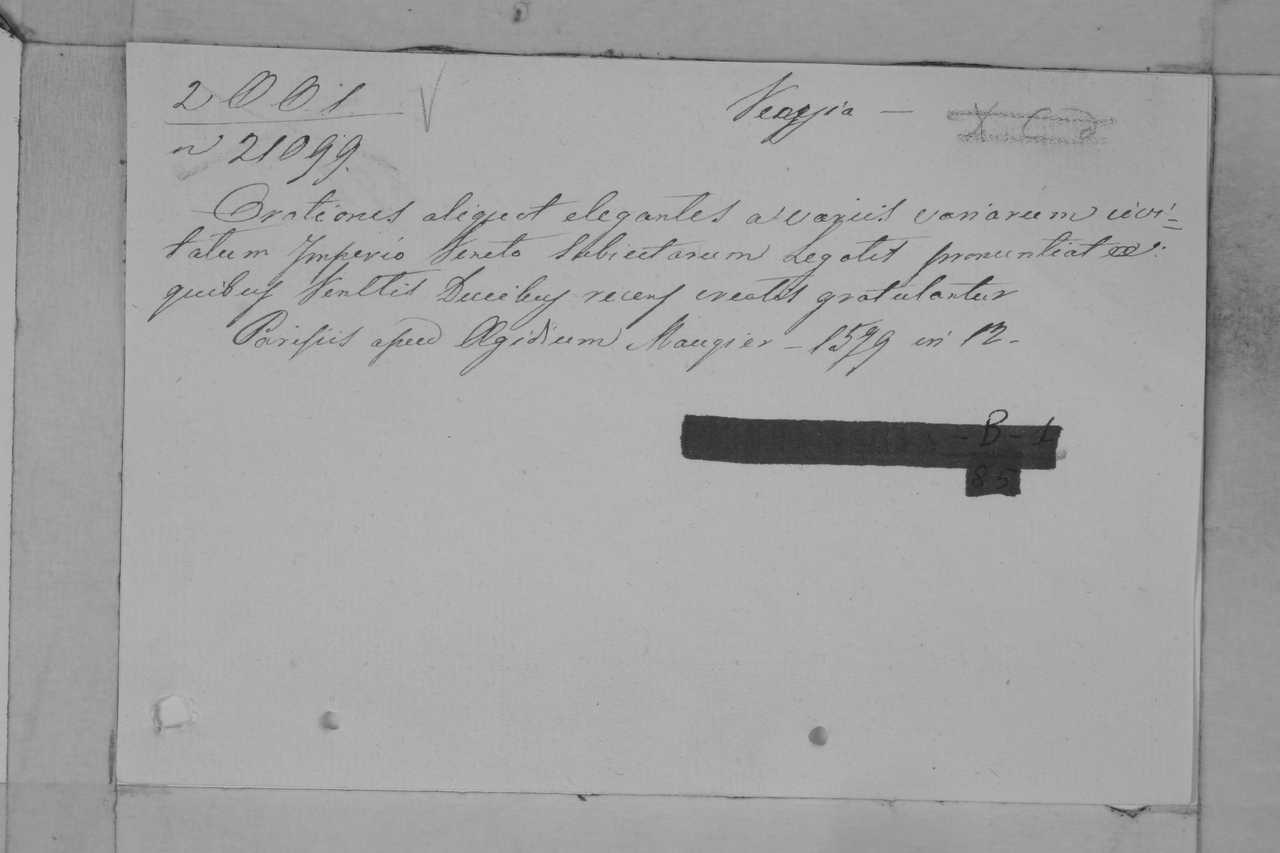 2001
Venezia —
n 21099.
Orationes aliquot elegantes a variis variarum civi-
tatum Imperio Veneto Subiectarum Legatis pronuntiatæ:
quibus Venetis Ducibus recens creatis gratulantur
Parisiis apud Ægidium Maugier – 1579 in 12 –
– B – L
85